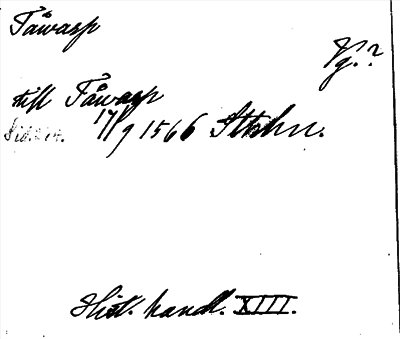 Tåwasp
Vg.?
till Tåwasp
17/9 1566 Sthlm.
Hist. handl. XIII.